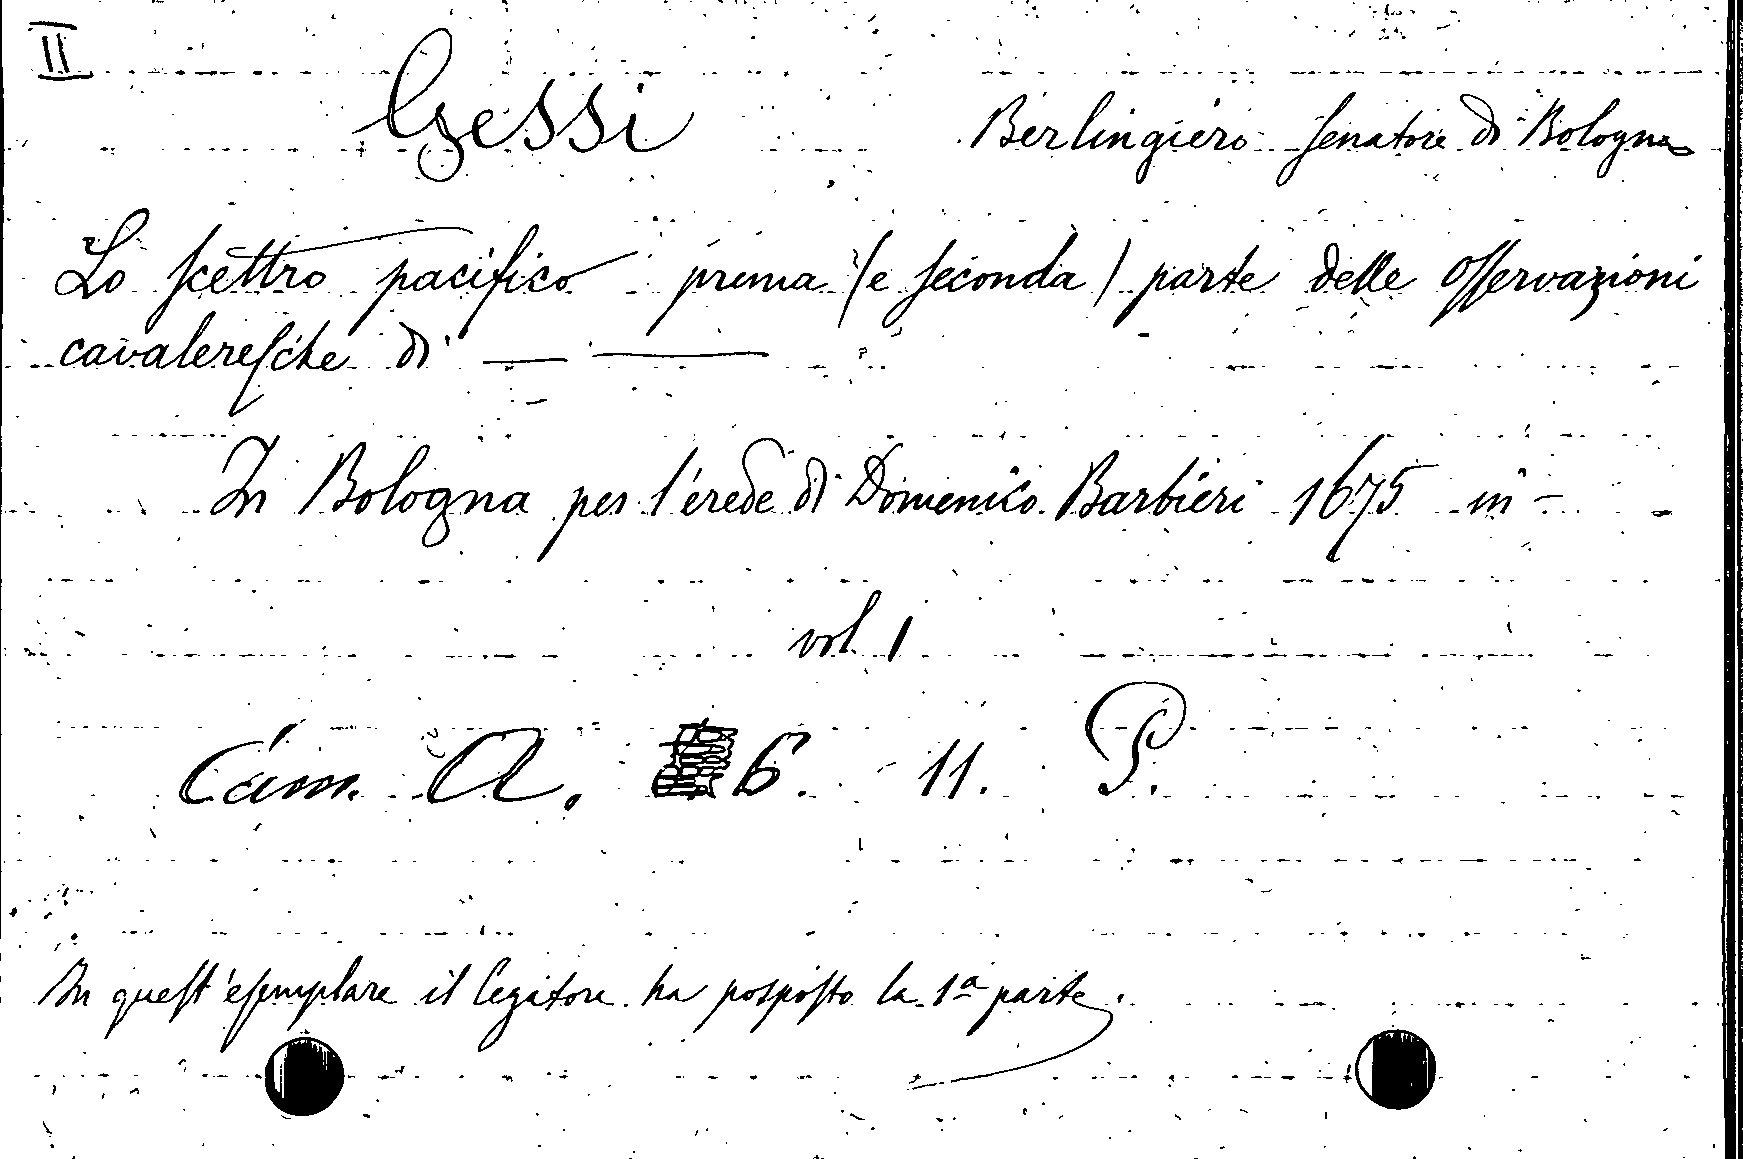 II
Gessi Berlingiero senatore di Bologna
Lo scettro pacifico prima (e seconda) parte delle osservazioni
cavaleresche di — —
In Bologna per l'erede di Domenico Barbieri 1675 in -
vol. 1
Cam. A. 6. 11. P.
In quest'esemplare il legatore ha posposto la 1ª parte.